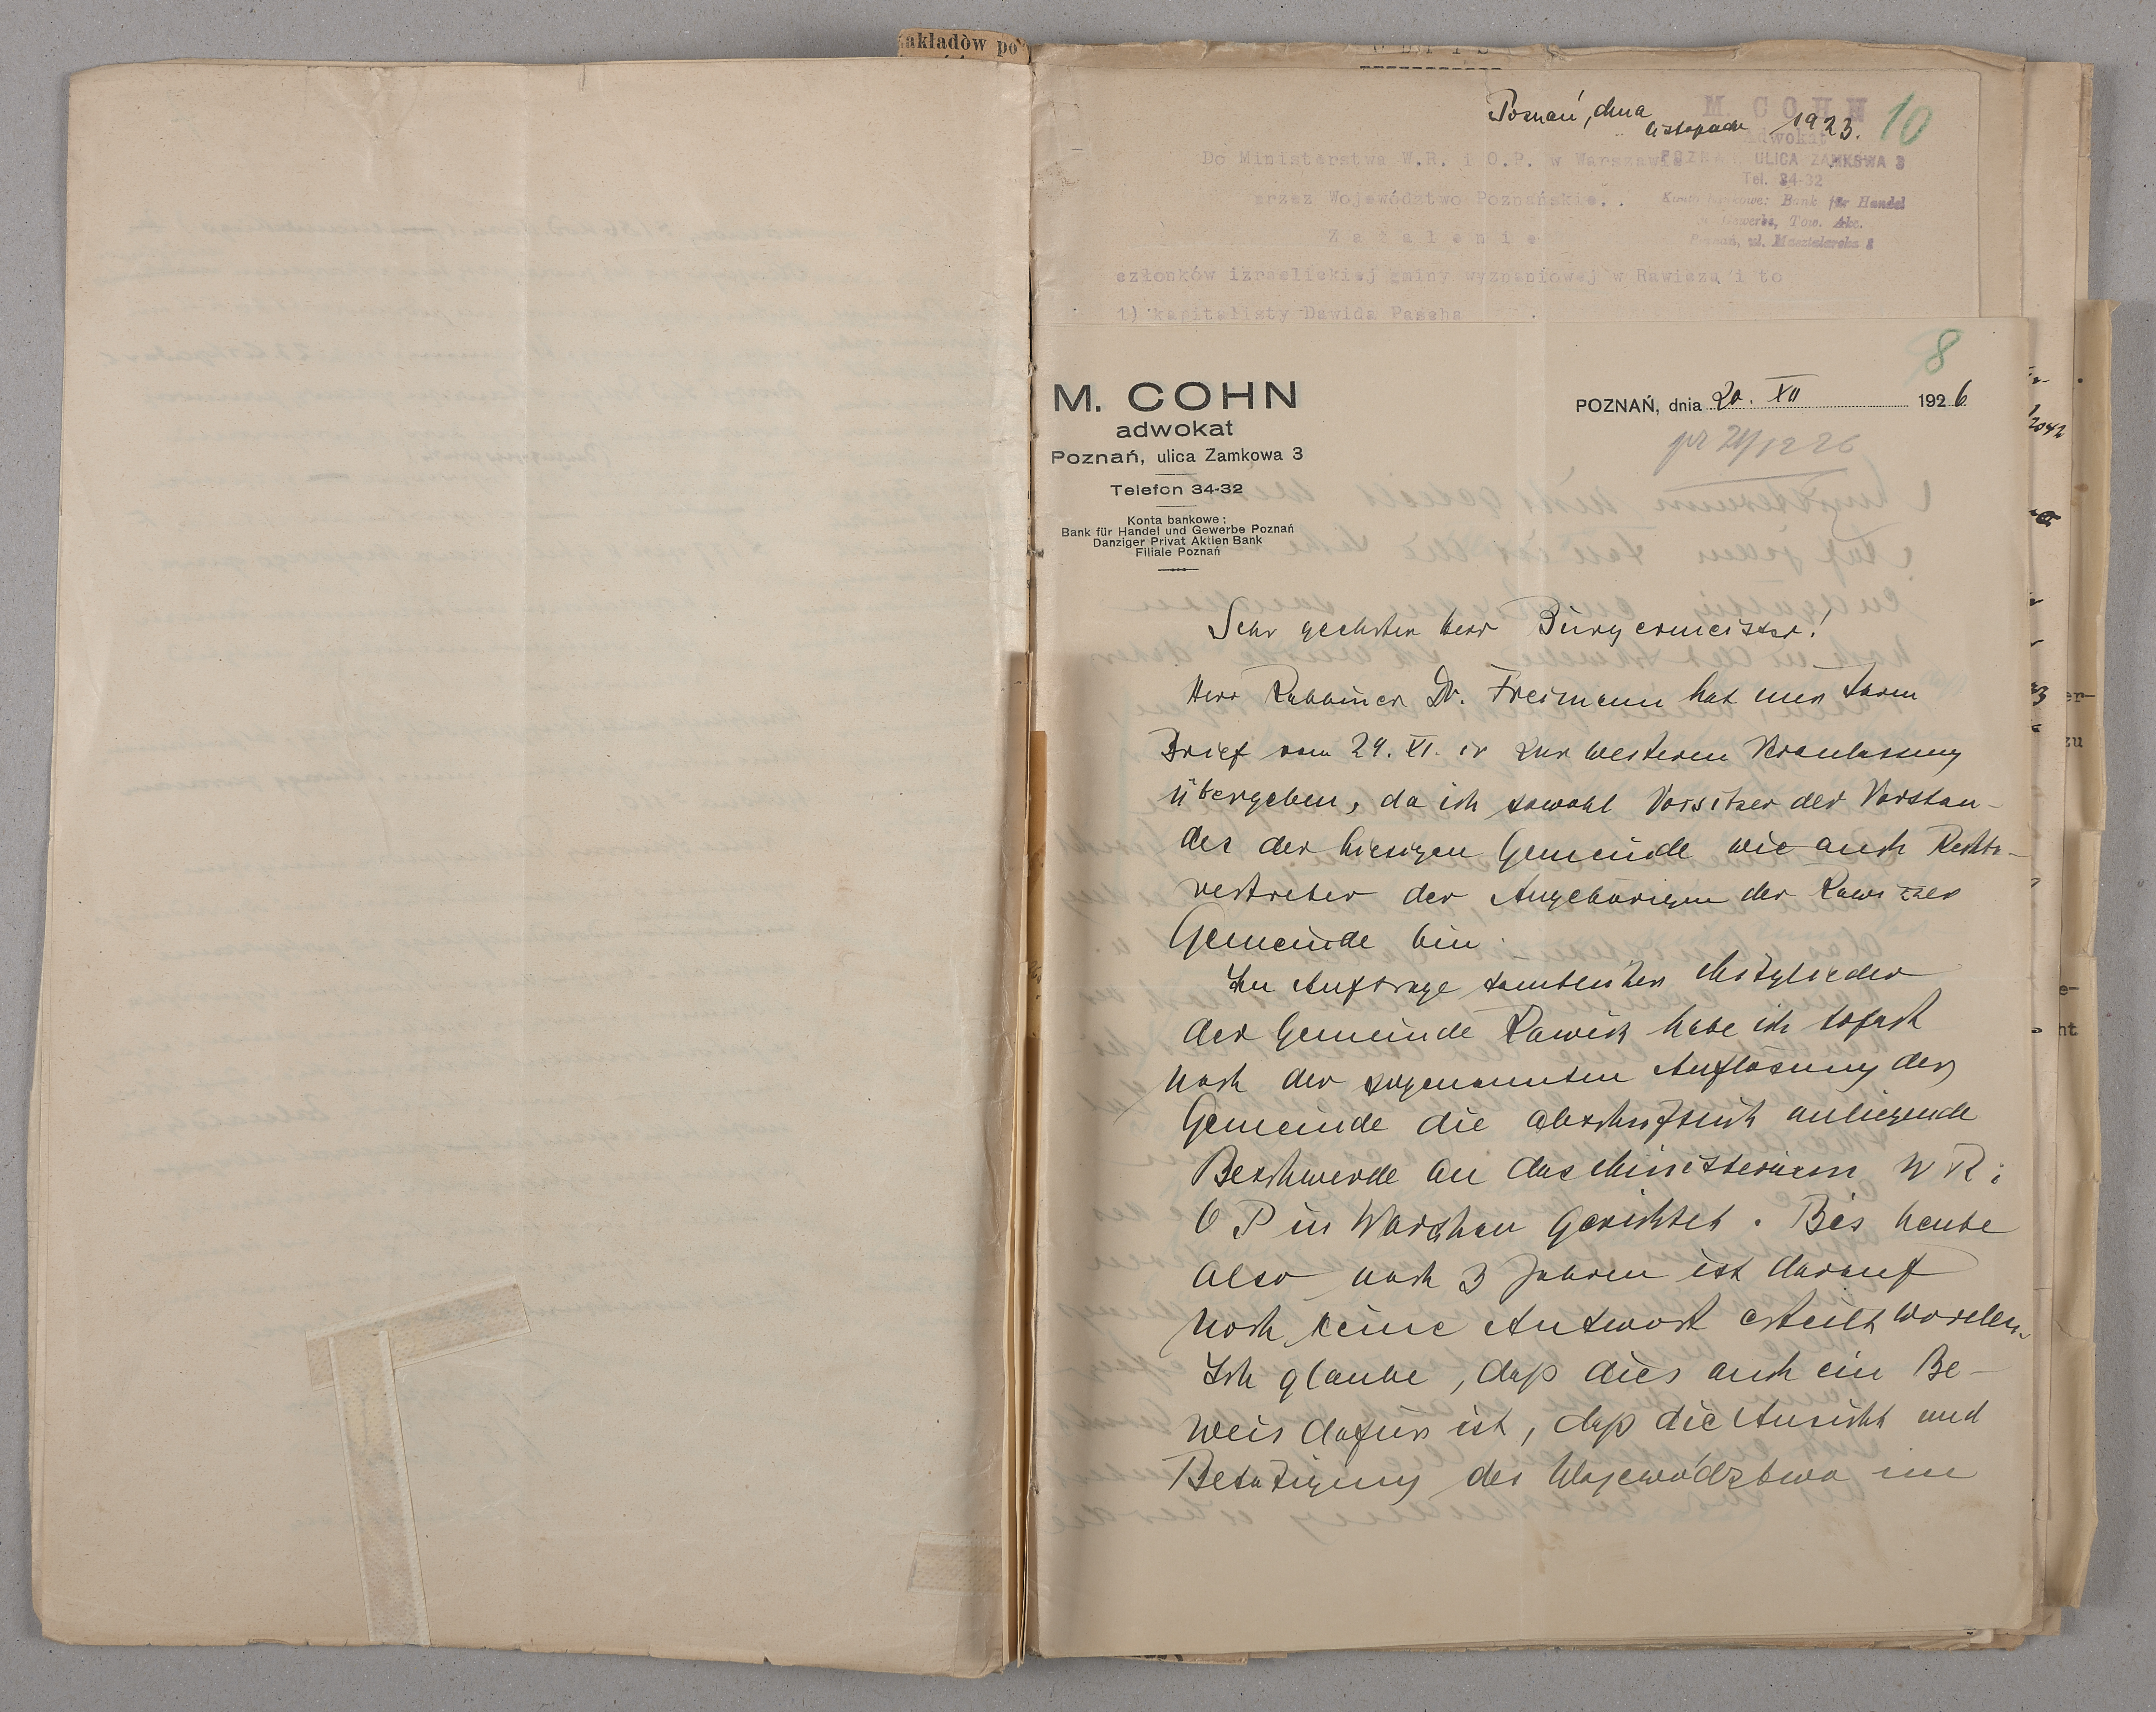 akładòw po
Poznań, dnia
listopada 1923. 10
M. COHN
Adwokat
POZNAŃ ULICA ZAMKOWA 3
Tel. 34-32
Konto bankowe: Bank für Handel
u. Gewerbe, Tow. Akc.
Poznań, ul. Masztalarska 8
Do Ministerstwa W.R. i O.P. w Warszawie
przez Województwo Poznańskie..
Zażalenie
członków izraelickiej gminy wyznaniowej w Rawiczu i to
1) kapitalisty Dawida Pascha
8
M. COHN
adwokat
Poznań, ulica Zamkowa 3
Telefon 34-32
Konta bankowe:
Bank für Handel und Gewerbe Poznań
Danziger Privat Aktien Bank
Filiale Poznań
POZNAŃ, dnia 20. XII 1926
pr 21/12 26
Sehr geehrter Herr Bürgermeister!
Herr Rabbiner Dr. Freimann hat mir Ihren
Brief vom 24. XI. cr zur weiteren Veranlassung
übergeben, da ich sowohl Vorsitzer des Vorstan-
des der hiesigen Gemeinde wie auch Rechts-
vertreter der Angehörigen der Rawiczer
Gemeinde bin.
Im Auftrage samtlicher Mitglieder
der Gemeinde Rawicz habe ich sofort
nach der sogenannten Auflösung der
Gemeinde die abschriftlich anliegende
Beschwerde an das Ministerium W R i
O P in Warschau gerichtet. Bis heute
also nach 3 Jahren ist darauf
noch keine Antwort erteilt worden.
Ich glaube, daß dies auch ein Be-
weis dafür ist, daß die Ansicht und
Betatigung des Województwo im